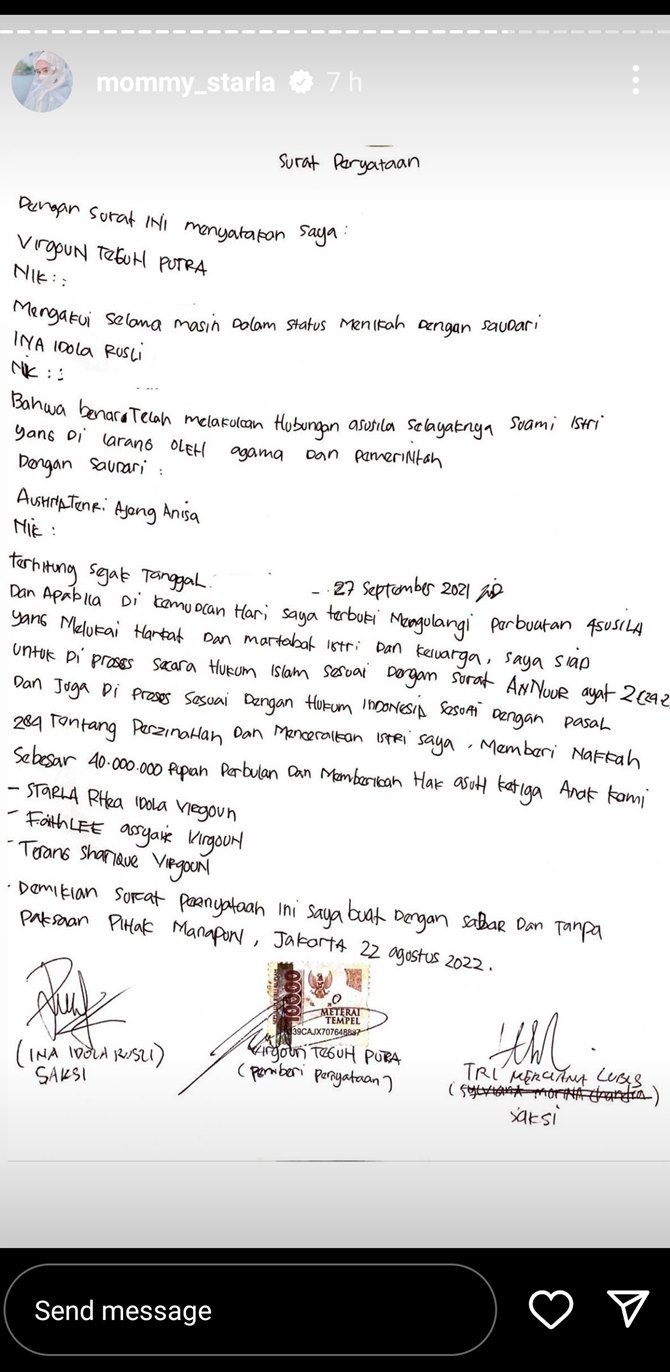 mommy_starla 7 h
Surat Peryataan
Dengan Surat INI menyatakan saya :
VIRGOUN TEGUH PUTRA
NIK : :
Mengakui Selama masih Dalam Status Menikah Dengan Saudari
INA IDOLA RUSLI
NIK : :
Bahwa benar Telah melakukan Hubungan asusila Selayaknya Suami Istri
yang Di larang OLEH agama Dan Pemerintah
Dengan Saudari :
Ajeng Anisa
NIK :
Terhitung Sejak Tanggal - 27 September 2021
Dan Apabila Di kemudian Hari Saya terbukti Mengulangi Perbuatan ASUSILA
yang Melukai Harkat Dan martabat Istri Dan keluarga, Saya Siap
untuk Di Proses Secara Hukum Islam Sesuai Dengan Surat ANNUUR ayat 2
Dan Juga Di Proses Sesuai Dengan Hukum INDONESIA Sesuai Dengan Pasal
284 Tentang Perzinahan Dan Menceraikan Istri saya, Memberi Nafkah
Sebesar 40.000.000 Rupiah Perbulan Dan Memberikan Hak asuh ketiga Anak kami
- STARLA RHEA IDOLA VIRGOUN
- FAITHLEE VIRGOUN
- Terang Sharique VIRGOUN
· Demikian Surat pernyataan Ini Saya buat Dengan SADAR Dan Tanpa
PAKSAAN PIHAK MANAPUN, JAKARTA 22 agustus 2022.
10000
METERAI
TEMPEL
(INA IDOLA RUSLI)
SAKSI
VIRGOUN TEGUH PUTRA
(Pemberi Peryataan)
TRI LUBIS
SAKSI
Send message